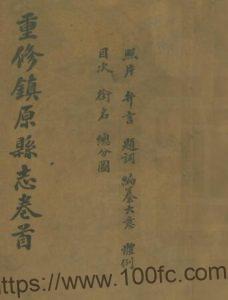 重修鎮原縣志卷首
照片 弁言 題詞 編纂大意 體例
目次 銜名 總分圖
https://www.100fc.com